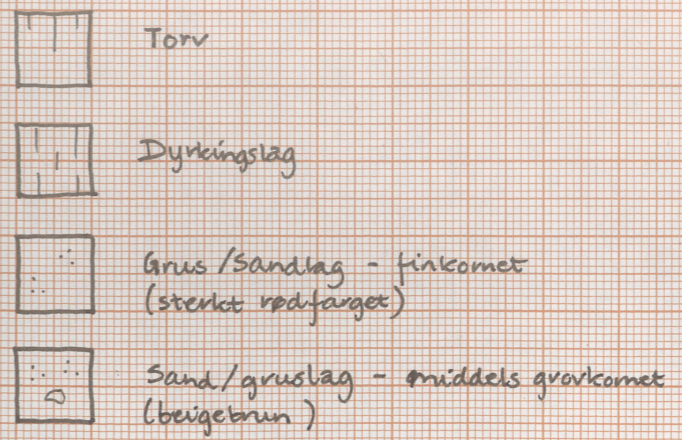 Torv
Dyrkingslag
Grus/Sandlag - finkornet
(sterkt rødfarget)
Sand/gruslag - middels grovkornet
(beigebrun)